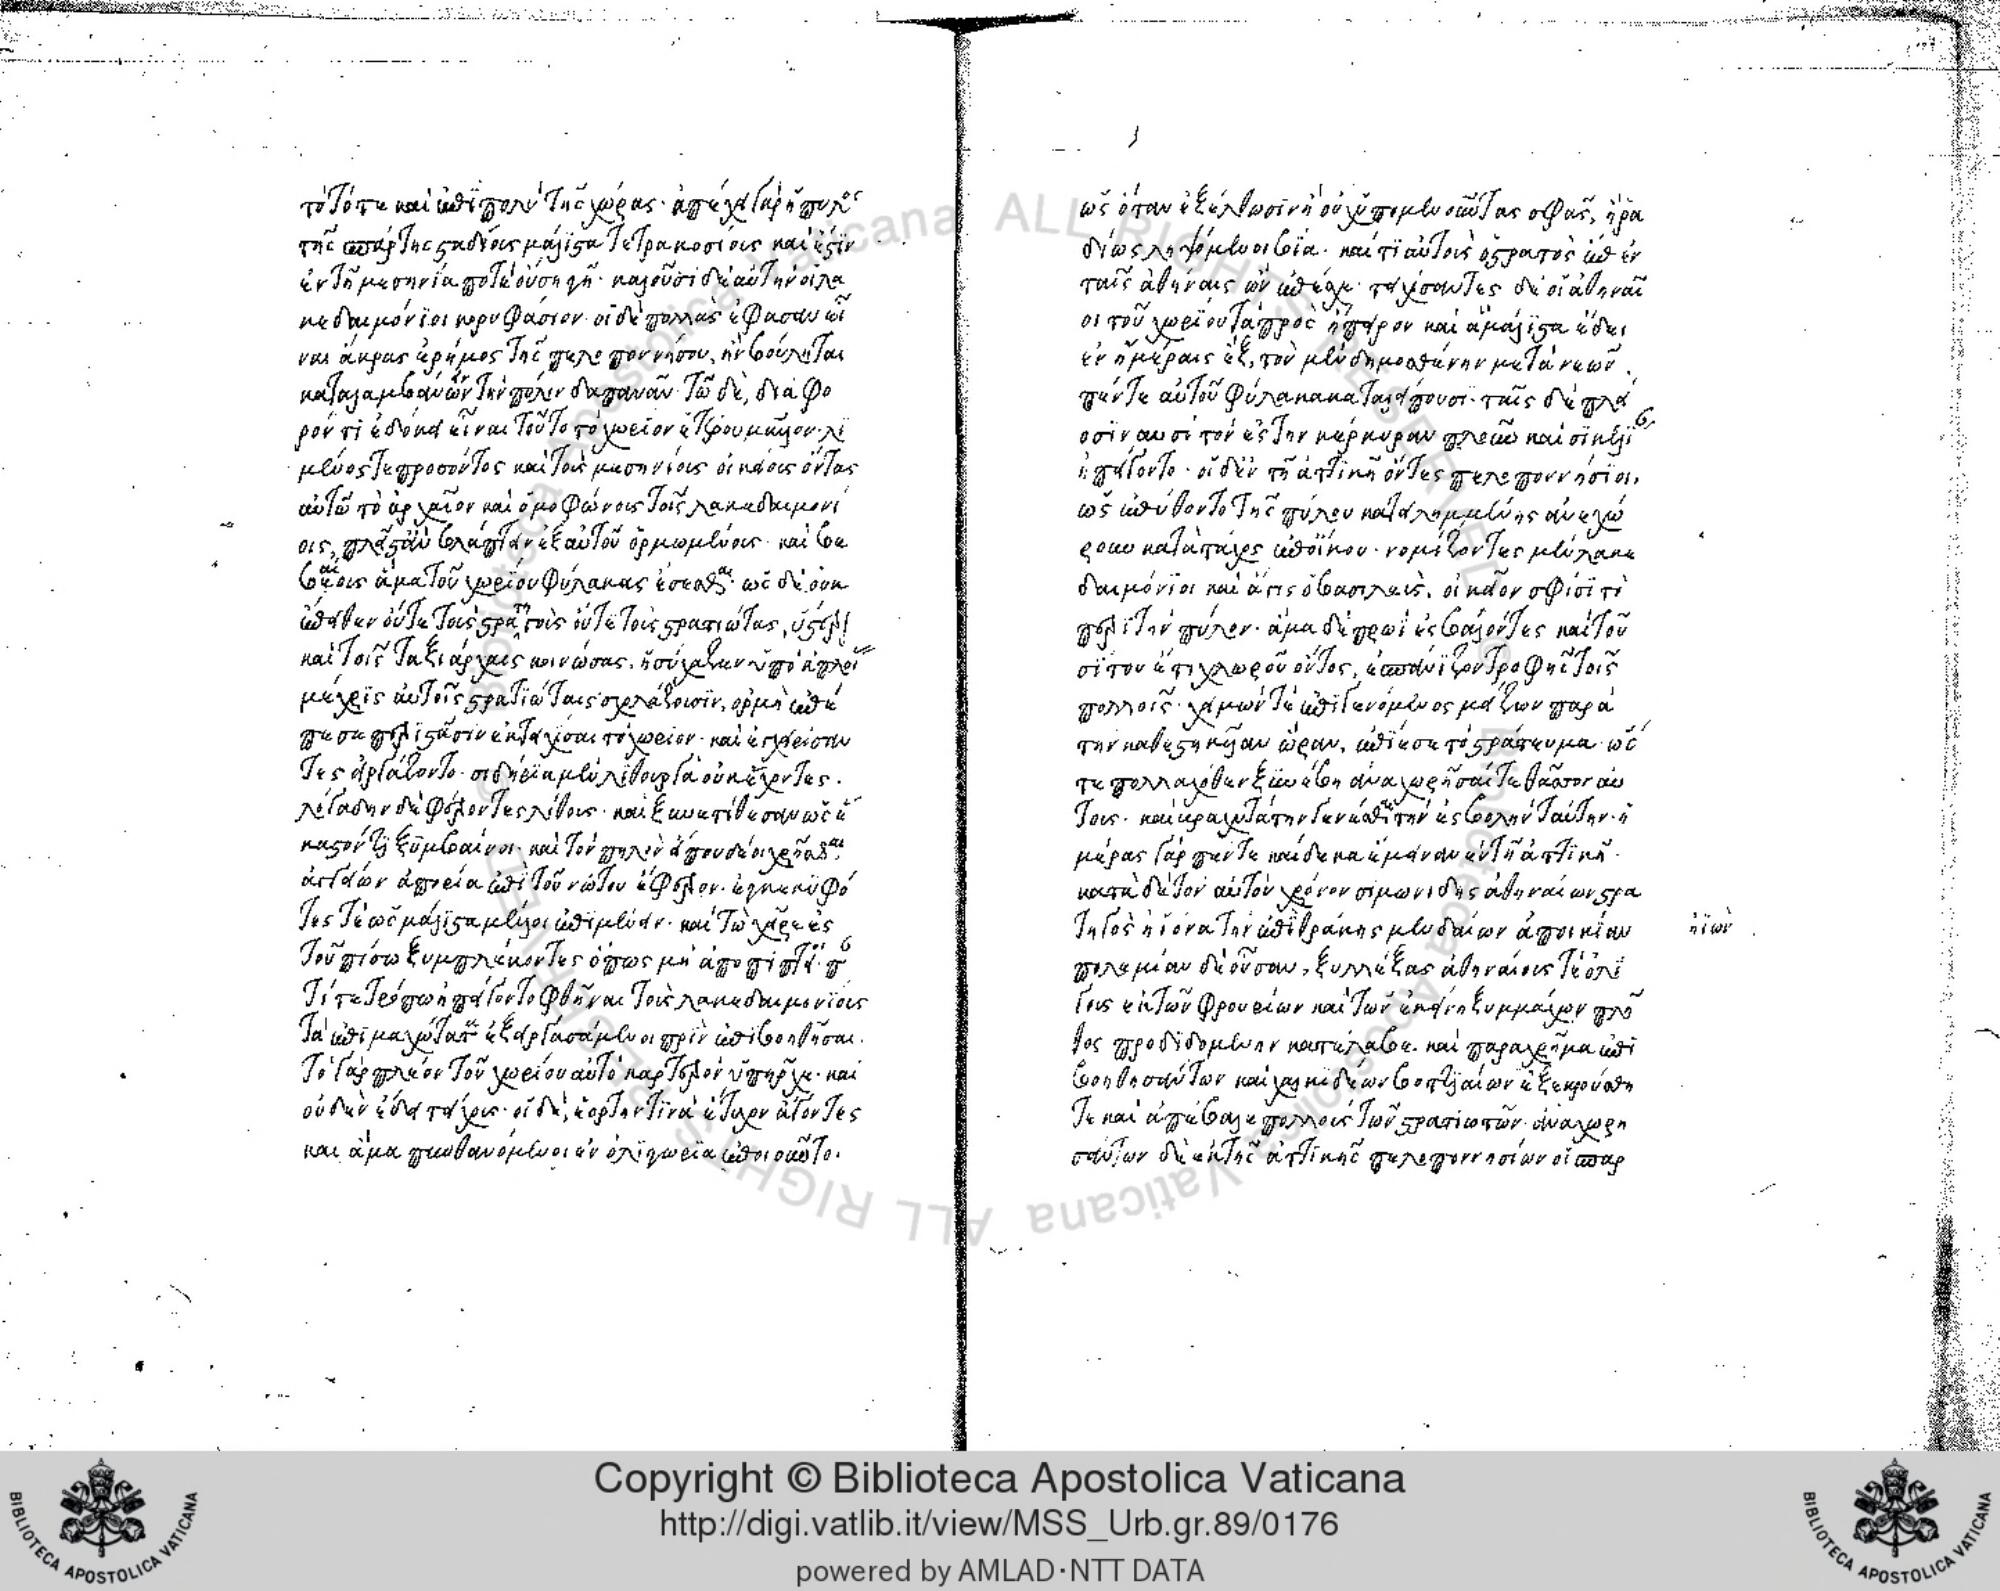 τότε καὶ ἐπὶ πολὺ τῆς χώρας· ἀπέχει γὰρ ἡ πύλος
τῆς σπάρτης σταδίοις μάλιστα τετρακοσίοις καὶ ἔστιν
ἐν τῆ μεσηνία ποτὲ οὔση γῆ· καλοῦσι δὲ αὐτὴν οἱ λα
κεδαιμόνιοι κορυφάσιον· οἱ δὲ πολλὰς ἔφασαν εἶ
ναι ἄκρας ἐρήμος τῆς πελοποννήσου, ἢν βούληται
καταλαμβάνων τὴν πόλιν δαπανᾶν· τῶ δὲ, διάφο
ρόν τι ἐδόκει εἶναι τοῦτο τὸ χωρίον ἑτέρου μᾶλλον· λι
μένος τε προσόντος καὶ τοὺς μεσηνίους οἰκείους ὄντας
αὐτῶ τὸ ἀρχαῖον καὶ ὁμοφώνους τοῖς λακεδαιμονί
οις, πλεῖστ' ἂν βλάπτειν ἐξ αὐτοῦ ὁρμωμένους· καὶ βε
βαίους ἅμα τοῦ χωρίου φύλακας ἔσεσθαι· ὡς δὲ οὐκ
ἔπειθεν οὔτε τοὺς στρατηγοὺς οὔτε τοὺς στρατιώτας, ὕστερον
καὶ τοῖς ταξιάρχαις κοινώσας, ἡσύχαζεν ὑπὸ ἀπλοί
μέχρις αὐτοῖς στρατιώταις σχολάζουσιν, ὁρμὴ ἐπέ
πεσε περιστᾶσιν ἐκτειχίσαι τὸ χωρίον· καὶ ἐγχειρίσαν
τες εἰργάζοντο· σιδήρια μὲν λιθουργὰ οὐκ ἔχοντες.
λογάδην δὲ φέροντες λίθους· καὶ ξυνετίθεσαν ὡς ἕ
καστόν τι ξυμβαίνοι· καὶ τὸν πηλὸν εἴ που δέοι χρῆσθαι
ἀγγείων ἀπορία ἐπὶ τοῦ νώτου ἔφερον· ἐγκεκυφό
τες τὲ ὡς μάλιστα μέλλοι ἐπιμένειν· καὶ τὼ χεῖρε ἐς
τοὐπίσω ξυμπλέκοντες ὅπως μὴ ἀποπίπτοι· π
τί τε τρόπω ἠπείγοντο φθῆναι τοὺς λακεδαιμονίους
τὰ ἐπιμαχώτατα ἐξεργασάμενοι πρὶν ἐπιβοηθῆσαι.
τὸ γὰρ πλέον τοῦ χωρίου αὐτὸ καρτερὸν ὑπῆρχε· καὶ
οὐδὲν ἔδει τείχους· οἱ δὲ, ἑορτήν τινα ἔτυχον ἄγοντες
καὶ ἅμα πυνθανόμενοι ἐν ὀλιγωρία ἐποιοῦντο.
ὡς ὅταν ἐξέλθωσιν ἢ οὐχ ὑπομενοῦντας σφᾶς, ἢ ῥα
δίως ληψόμενοι βία· καί τι αὐτοὺς ὁ στρατὸς ἔτι ἐν
ταῖς ἀθήναις ὢν ἐπέσχε· τειχίσαντες δὲ οἱ ἀθηναῖ
οι τοῦ χωρίου τὰ πρὸς ἤπειρον καὶ ἃ μάλιστα ἔδει
ἐν ἡμέραις ἓξ, τὸν μὲν δημοσθένην μετὰ νεῶν
πέντε αὐτοῦ φύλακα καταλείπουσι· ταῖς δὲ πλεί
οσι ναυσὶ τὸν ἐς τὴν κέρκυραν πλοῦν καὶ σικελί
ἠπείγοντο· οἱ δ' ἐν τῆ ἀττικῆ ὄντες πελοποννήσιοι,
ὡς ἐπύθοντο τῆς πύλου κατειλημμένης ἀνεχώ
ρουν κατὰ τάχος ἐπ' οἴκου· νομίζοντες μὲν λακε
δαιμόνιοι καὶ ἆγις ὁ βασιλεὺς, οἰκεῖον σφίσι τὸ
περὶ τὴν πύλον· ἅμα δὲ πρωῒ ἐσβαλόντες καὶ τοῦ
σίτου ἔτι χλωροῦ ὄντος, ἐσπάνιζον τροφῆς τοῖς
πολλοῖς· χειμών τε ἐπιγενόμενος μείζων παρὰ
τὴν καθεστηκυῖαν ὥραν, ἐπίεσε τὸ στράτευμα· ὥσ
τε πολλαχόθεν ξυνέβη ἀναχωρῆσαί τε θᾶττον αὐ
τους· καὶ βραχυτάτην γενέσθαι τὴν ἐσβολὴν ταύτην· ἡ
μέρας γὰρ πέντε καὶ δέκα ἔμειναν ἐν τῆ ἀττικῆ·
κατὰ δὲ τὸν αὐτὸν χρόνον σιμωνίδης ἀθηναίων στρα
τηγὸς ἠϊόνα τὴν ἐπὶ θράκης μενδαίων ἀποικίαν
ἠϊών
πολεμίαν δὲ οὖσαν, ξυλλέξας ἀθηναίους τὲ ὀλί
γους ἐκ τῶν φρουρίων καὶ τῶν ἐκείνη ξυμμάχων πλῆ
θος προδιδομένην κατέλαβε· καὶ παραχρῆμα ἐπι
βοηθησάντων καὶ χαλκιδέων βοττιαίων ἐξεκρούσθη
τε καὶ ἀπέβαλε πολλοὺς τῶν στρατιωτῶν· ἀναχωρη
σάντων δὲ ἐκ τῆς ἀττικῆς πελοποννησίων οἱ σπαρ
Copyright © Biblioteca Apostolica Vaticana
http://digi.vatlib.it/view/MSS_Urb.gr.89/0176
powered by AMLAD·NTT DATA
BIBLIOTECA APOSTOLICA VATICANA
BIBLIOTECA APOSTOLICA VATICANA